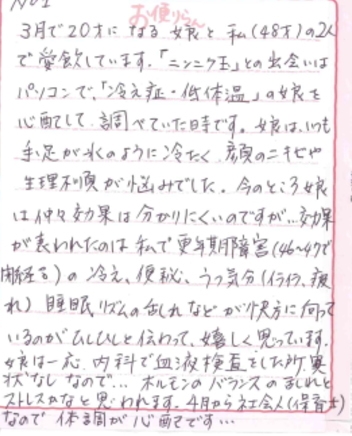 No1
お便りらん
3月で20才になる娘と私(48才)の2人
で愛飲しています。「ニンニク玉」との出会いは
パソコンで、「冷え症・低体温」の娘を
心配して調べていた時です。娘は、いつも
手足が氷のように冷たく、顔のニキビや
生理不順が悩みでした。今のところ娘
は仲々効果は分かりにくいのですが…効果
が表われたのは私で更年期障害(46~47で
閉経する)の冷え、便秘、うつ気分(イライラ、疲
れ)睡眠リズムの乱れなどが快方に向って
いるのがひしひしと伝わって、嬉しく思っています。
娘は一応、内科で血液検査をした所、異
状なしなので…ホルモンのバランスのみだれと
ストレスかなと思われます。4月から社会人(保育士)
なので体調が心配です…